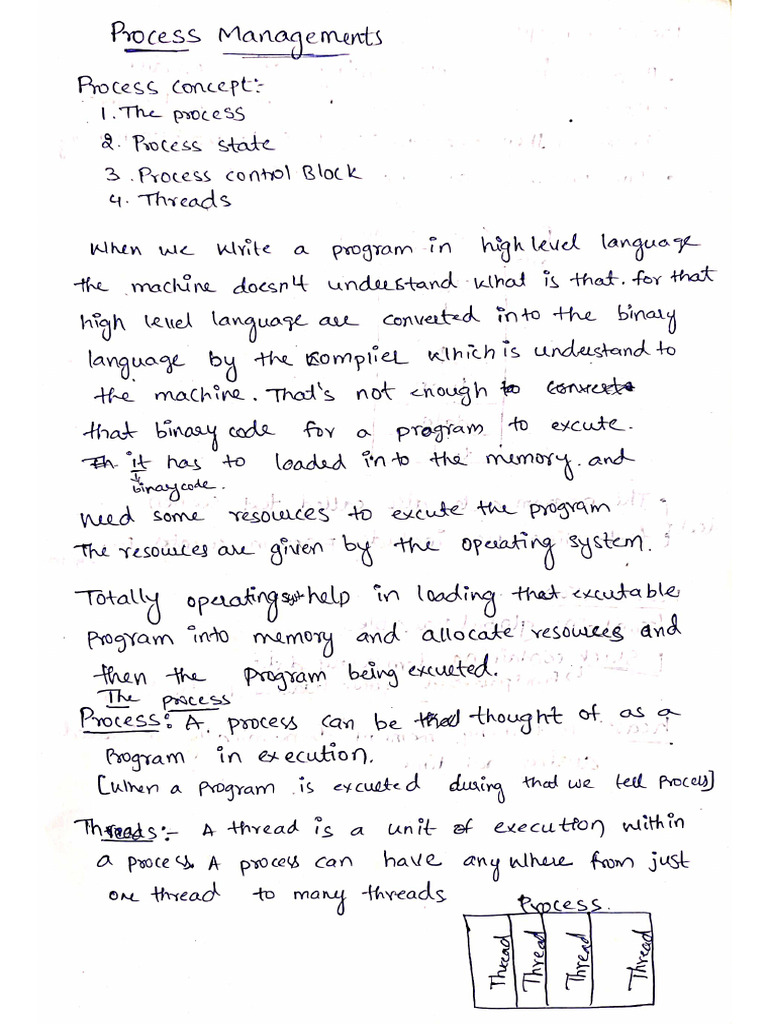 Process Managements
Process concept:-
1. The process
2. Process state
3. Process control Block
4. Threads
When we write a program in high level language
the machine doesn4 understand what is that. for that
high level language are converted into the binary
language by the complier which is understand to
the machine. That's not enough to convrete
that binary code for a program to excute.
In it has to loaded into the memory. and
binary code.
need some resources to excute the program
The resources are given by the operating system.
Totally operating syst help in loading that excutable
program into memory and allocate resources and
then the program being excueted.
The process
Process: A process can be thought of as a
Program in execution.
[When a program is excueted during that we tell process]
Threads:- A thread is a unit of execution within
a process. A process can have any where from just
one thread to many threads
Process.
Thread Thread Thread Thread